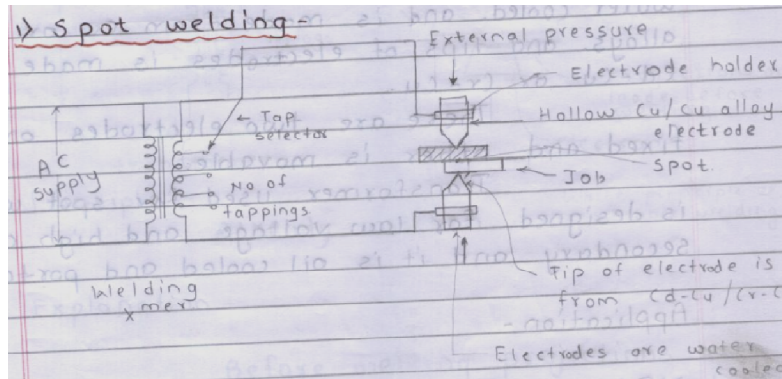 1) Spot welding-
External pressure
Electrode holder
Hollow Cu/Cu alloy
electrode
Tap
selector
AC
supply
Spot.
Job
No of
tappings
Welding
xmer
Tip of electrode is
from Cd-Cu/Cr-C
Electrodes are water
cooled